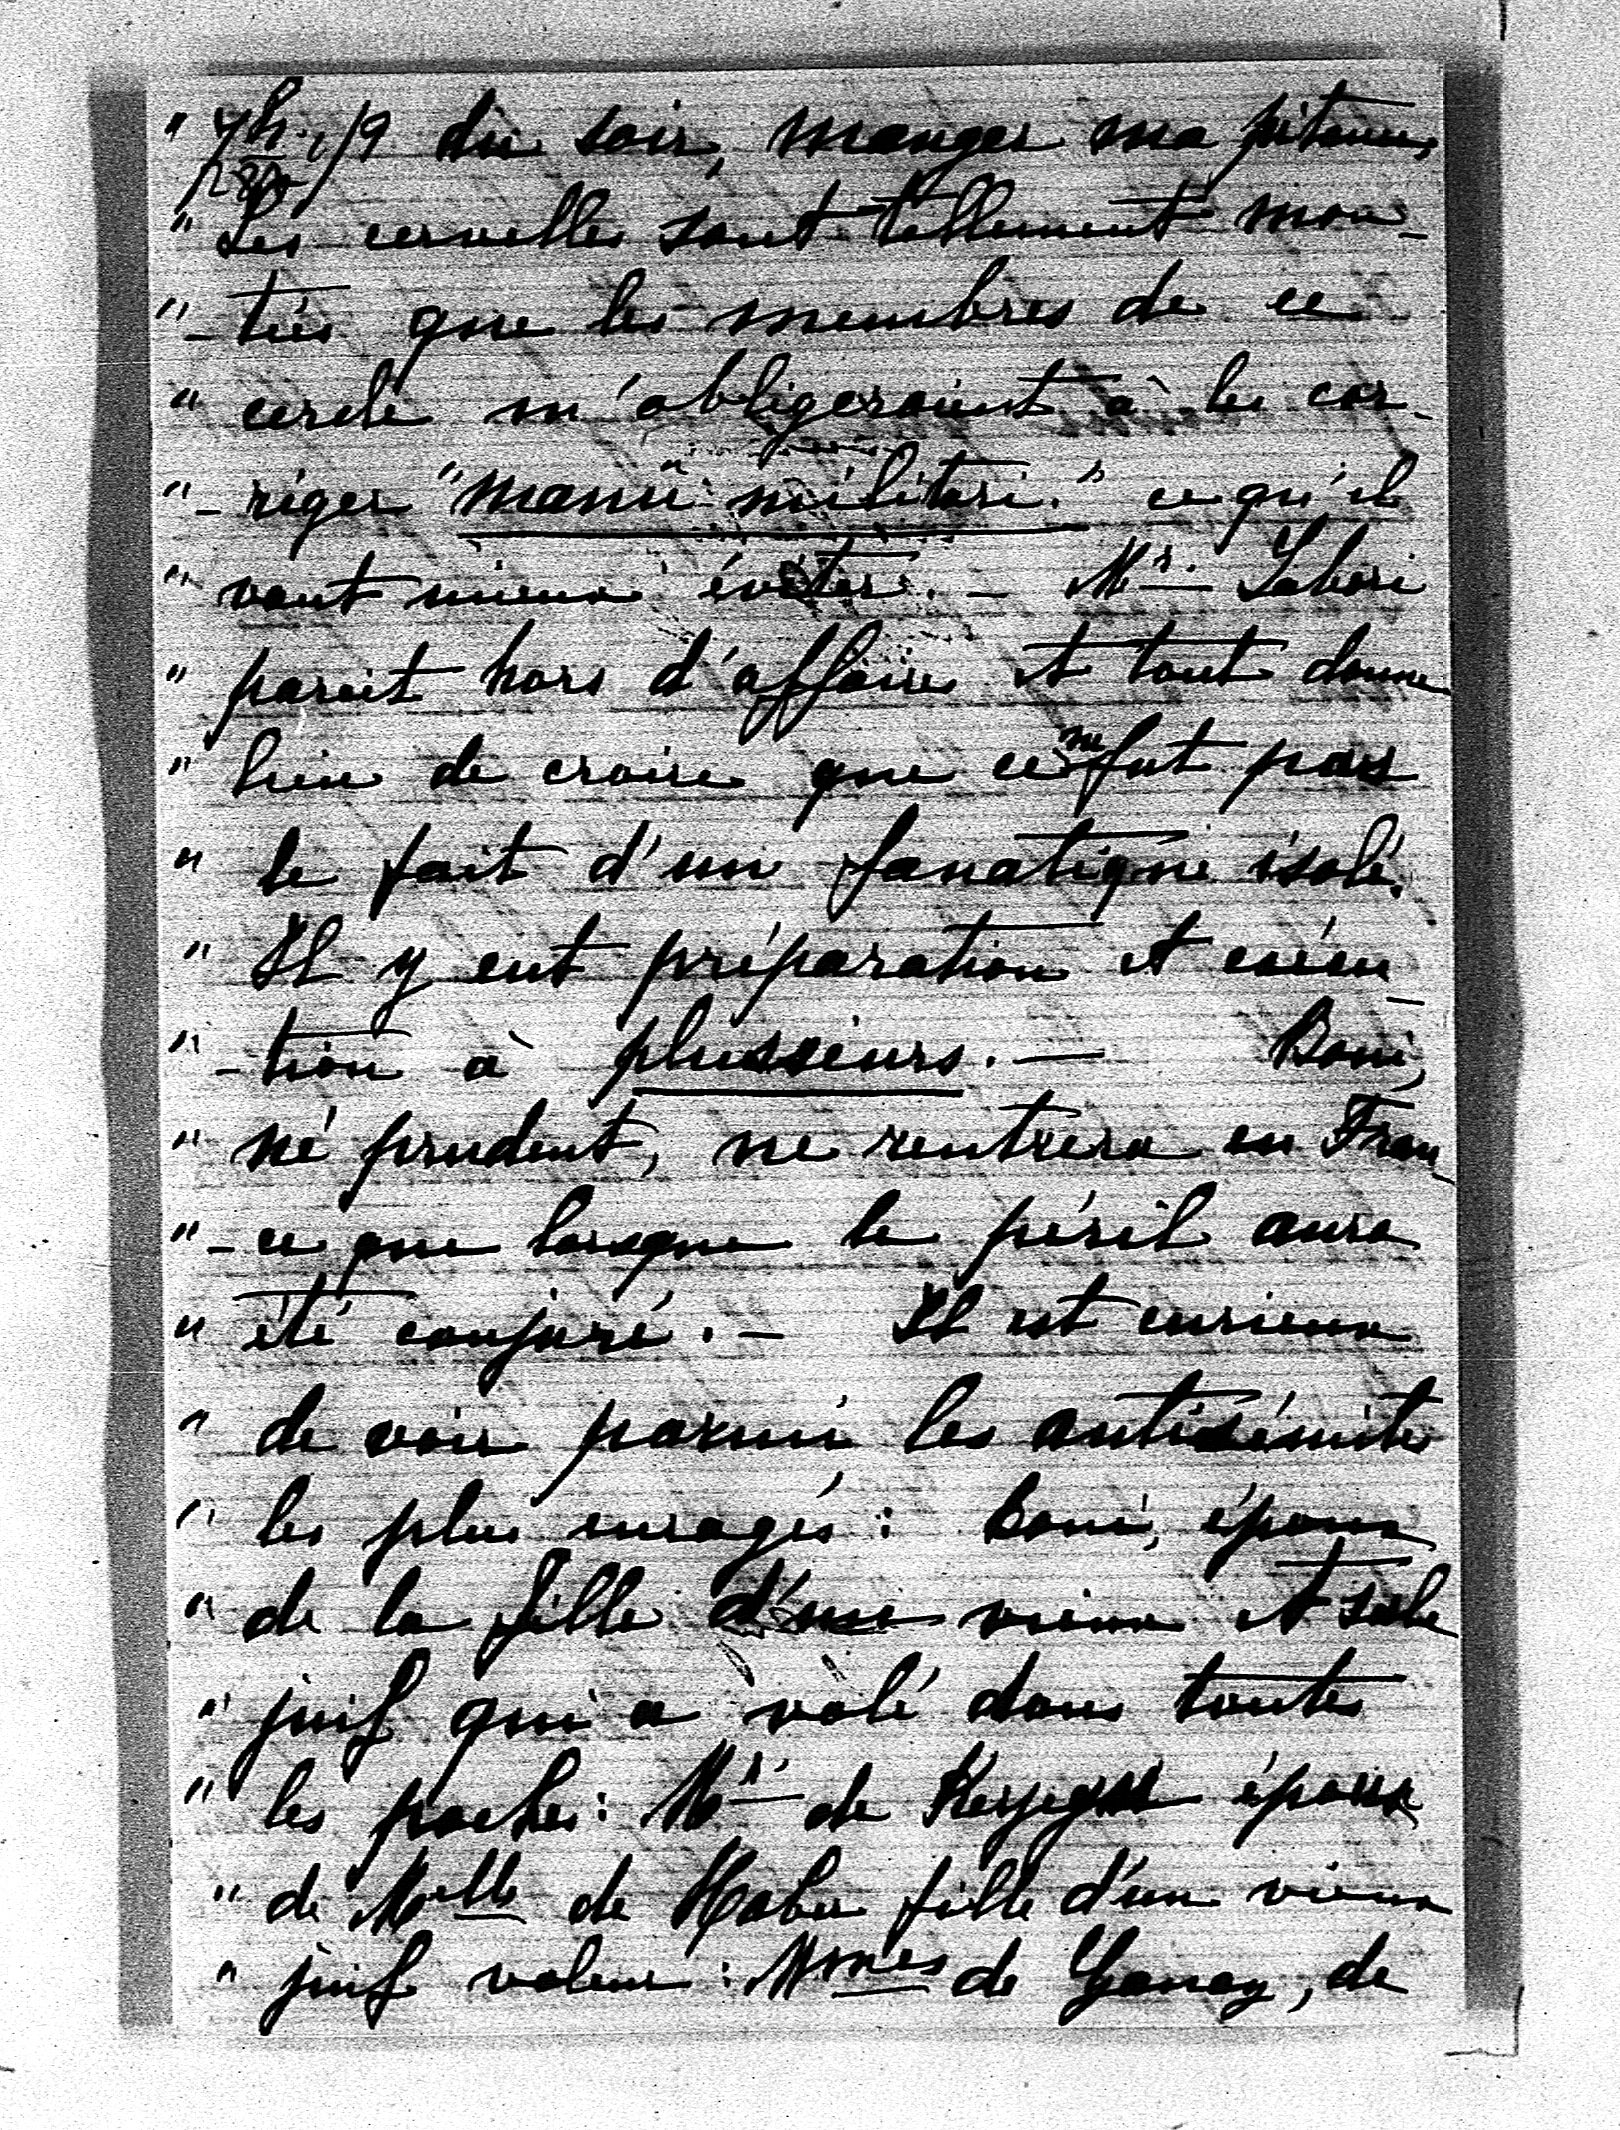 " 7h. 1/2 du soir, manger ma pitance,
" Les cervelles sont tellement mon-
" -tées que les membres de ce
" cercle m'obligeraient à les cor-
" -riger "manu militari." ce qu'il
" vaut mieux éviter. - Mr. Labori
" parait hors d'affaires et tout donne
" lieu de croire que ce ne fut pas
" le fait d'un fanatique isolé.
" Il y eut préparation et exécu-
" -tion à plusieurs. — Boni,
" né prudent, ne rentrera en Fran-
" -ce que lorsque le péril aura
" été conjuré. - Il est curieux
" de voir parmi les antisémites
" les plus enragés : Boni, époux
" de la fille d'un vieux et sale
" juif qui a volé dans toutes
" les poches : Mr. de Kerjégu époux
" de Melle de Haber fille d'un vieux
" juif voleur : Mmes de Ganay, de